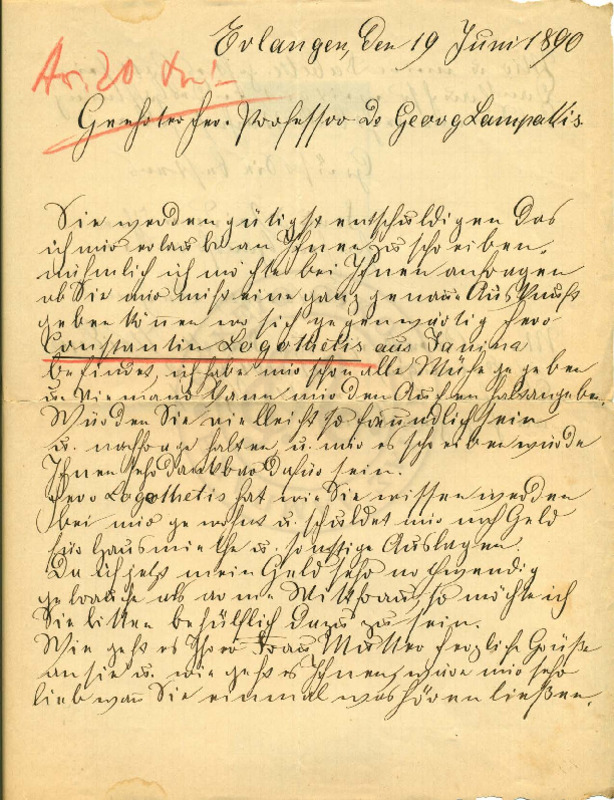 Erlangen, den 19 Juni 1890
Geehrter Herr Professor Dr Georg Lampakis.
Sie werden gütigst entschuldigen das
ich mir erlaube an Ihnen zu schreiben,
nähmlich ich möchte bei Ihnen anfragen
ob Sie mir nicht eine ganz genaue Auskunft
geben können wo sich gegenwärtig Herr
Constantin Logothetis aus Janina
befindet, ich habe mir schon alle Mühe gegeben
u. Niemand kann mir den Aufenhalt angeben.
Würden Sie vielleicht so freundlich sein
u. nachfrage halten, u. mir es schreiben würde
Ihnen sehr dankbar dafür sein.
Herr Logothetis hat wie Sie wissen werden
bei mir gewohnt u. schuldet mir noch Geld
für Hausmiethe u. sonstige Auslagen.
Da ich jetzt mein Geld sehr nothwendig
gebrauche als arme Wittfrau, so möchte ich
Sie bitten behülflich dazu zu sein.
Wie geht es Ihrer Frau Mutter herzliche Grüße
an sie u. wie geht es Ihnen, wäre mir sehr
lieb wan Sie einmal was hören ließen.